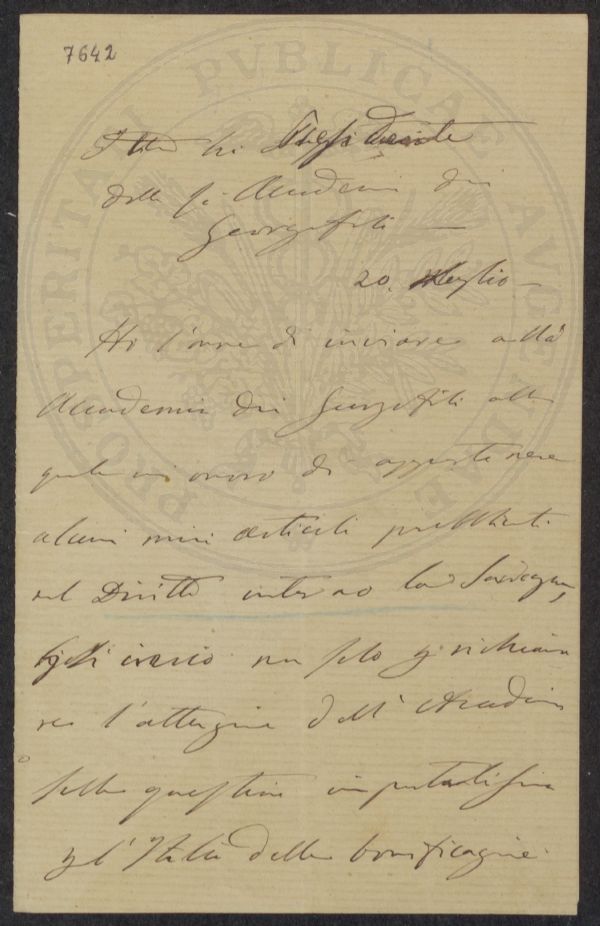 7642
PROSPERITATI PVBLICAE AVGENDAE
Presidente
della R. Accademia dei
Georgofili —
20. Luglio —
Ho l'onore di inviare alla
Accademia dei Georgofili alla
quale mi onoro di appartenere
alcuni miei articoli pubblicati
nel Diritto intorno la Sardegna,
non solo per richiama
re l'attenzione dell' Accademia
sulla questione importantissima
per l'Italia delle bonificazioni